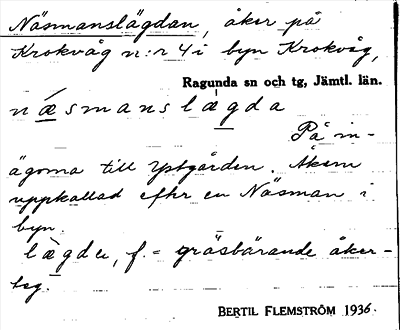 Näsmanslägdan, åker på
Krokvåg n:r 4 i byn Krokvåg,
Ragunda sn och tg, Jämtl. län.
næsmanslægda
På in-
ägorna till Ystgården. Åkern
uppkallad efter en Näsman i
byn.
lægde, f. = gräsbärande åker-
teg.
BERTIL FLEMSTRÖM 1936.